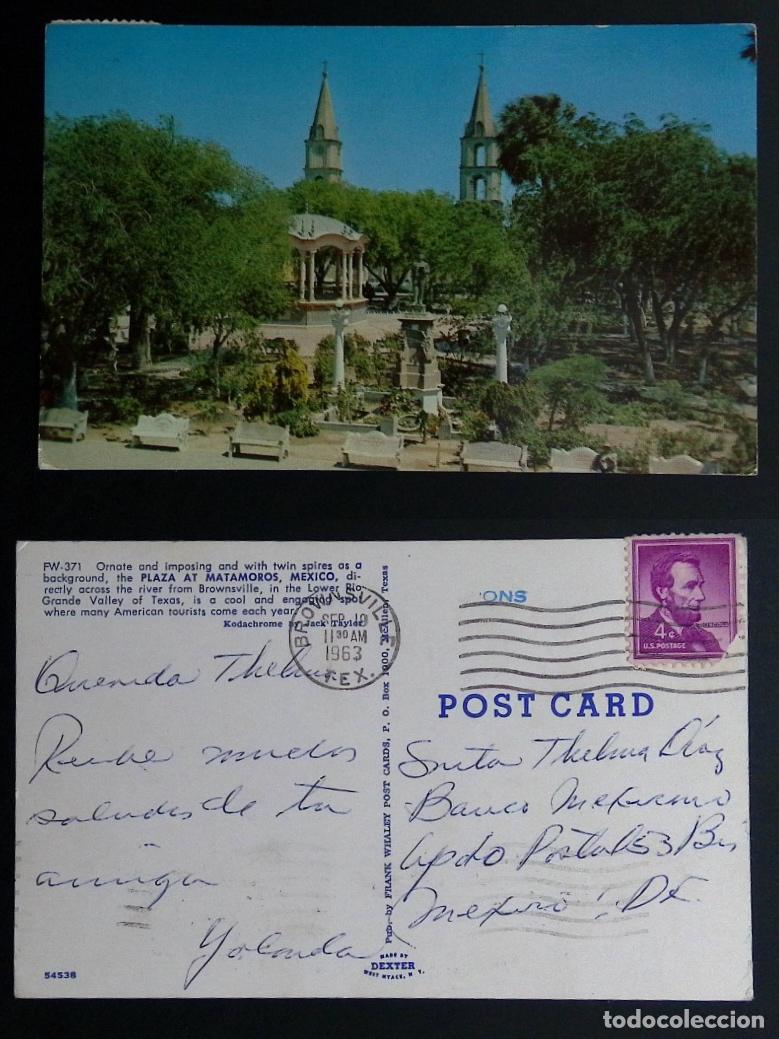 FW-371 Ornate and imposing and with twin spires as a
background, the PLAZA AT MATAMOROS, MEXICO, di-
rectly across the river from Brownsville, in the Lower Rio
Grande Valley of Texas, is a cool and engaging spot
where many American tourists come each year.
Kodachrome by Jack Taylor
BROWNSVILLE
SEP 19
11 30 AM
1963
TEX.
Querida Thelma
Recibe muchos
saludos de tu
amiga
Yolanda
54538
Pub. by FRANK WHALEY POST CARDS, P. O. Box 1000, McAllen, Texas
MADE BY
DEXTER
WEST NYACK, N. Y.
ONS
LINCOLN
4¢
U.S. POSTAGE
POST CARD
Srita Thelma Díaz
Banco Mexicano
Apdo Postal 53 Bis
Mexico, D.F.
todocoleccion